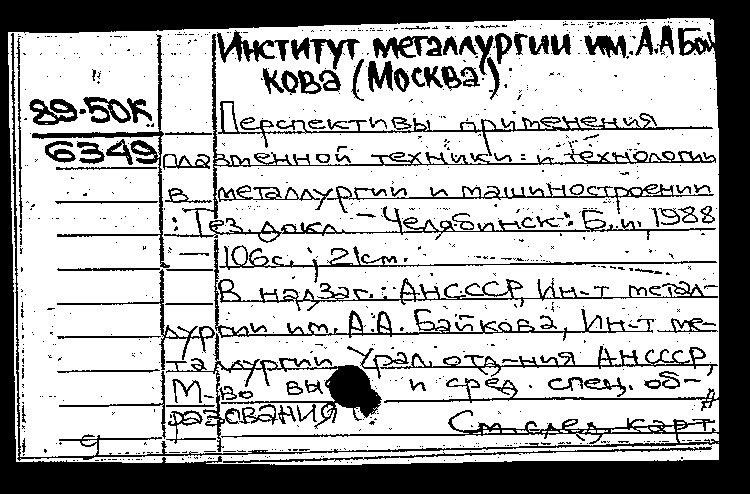 Институт металлургии им. А.А Бай
кова (Москва).
89-50К
6349
Перспективы применения
плазменной техники и технологии
в металлургии и машиностроении
: Тез. докл. - Челябинск: Б. и. 1988
- 106с. ; 21см.
В надзаг.: АН СССР, Ин-т метал-
лургии им. А.А. Байкова, Ин-т ме-
таллургии Урал. отд-ния АН СССР,
М-во и сред. спец. об-
разования
См. след. карт.
g